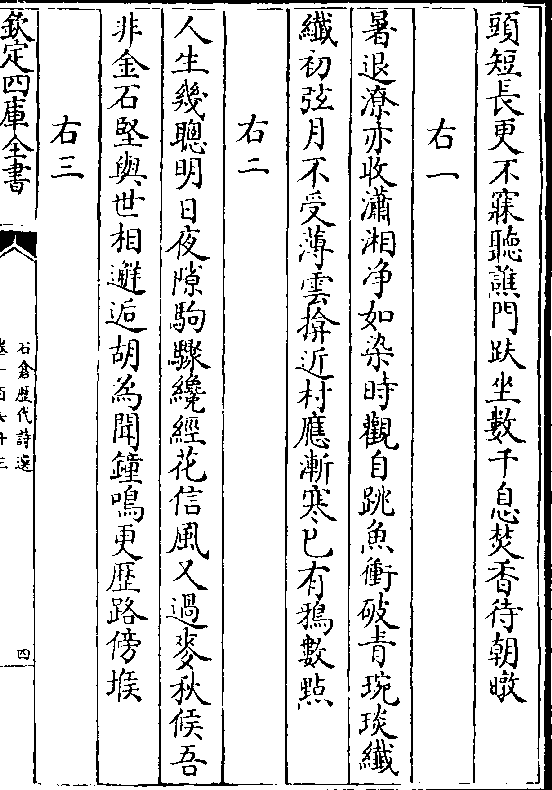 頭短長更不寐聽譙門趺坐數千息焚香待朝暾
右一
暑退潦亦收瀟湘净如染時觀自跳魚衝破青琬琰纖
纖初弦月不受薄雲揜近村應漸寒已有鴉數㸃
右二
人生幾聰明日夜隙駒驟纔經花信風又過麥秋候吾
非金石堅與世相邂逅胡為聞鐘鳴更歴路傍堠
右三
欽定四庫全書
石倉歴代詩選
四